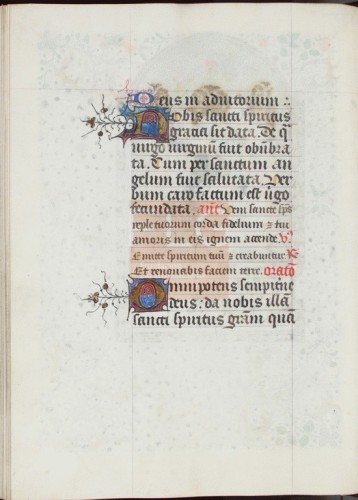 Deus in adiutorium :
Nobis sancti spiritus
gracia sit data. De q̄
uirgo uirginum fuit obūbra
ta. Cum per sanctum an
gelum fuit salutata. Ver
bum caro factum est u̓go
fecundata. an̄t Veni sancte sp̄s
reple tuorum corda fidelium ⁊ tui
amoris in eis ignem accende. v̓
Emitte spiritum tuū ⁊ creabuntur R̓
Et renouabis faciem terre. oratio
Omnipotens sempiterne
deus : da nobis illā
sancti spiritus grām quā